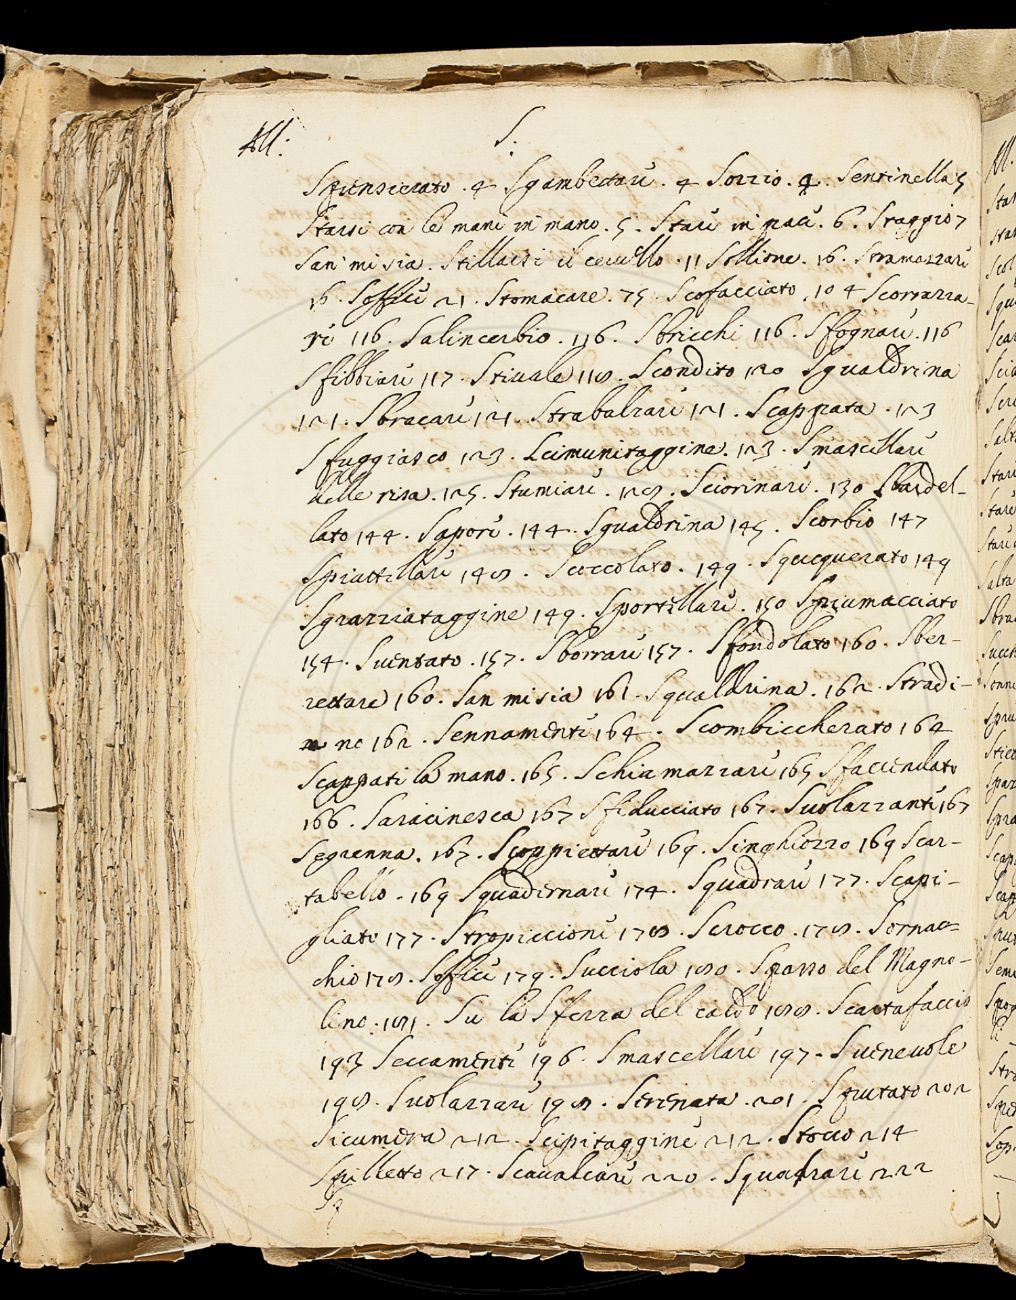 All: S.
Spensierato. 4 Sgambettare. 4 Sozzio. 4. Sentinella 5
Starsi con le mani in mano. 5. Stare in pace. 6. Staggio 7
San' mi sia. Stillarsi il cervello. 11 Sollione. 16. Stramazzare
16. Soffice 21. Stomacare. 75. Scofacciato. 104 Scorrazza-
re 116. Salincerbio. 116. Sbricchi 116. Sfognare. 116
Sfibbiare 117. Stivale 118. Scondito 120 Sgualdrina
121. Sbracare 121. Strabalzare 121. Scappata. 123
Sfuggiasco 123. Scimunitaggine. 123. Smascellare
delle risa. 125. Stumiare. 128. Sciorinare. 130 Sbardel-
lato 144. Sapore. 144. Sgualdrina 145. Scorbio 147
Spiattellare 148. Scoccolato. 149. Squcquerato 149
Sgraziataggine 149. Sportellare. 150 Spiumacciato
154. Sventato. 157. Sborrare 157. Sfondolato 160. Sber-
rettare 160. San mi sia 161. Sgualdrina. 162. Stradi-
no 162. Sennamente 164. Scombiccherato 164
Scappati la mano. 165. Schiamazzare 165 Sfaccendato
166. Saracinesca 167 Sfiducciato 167. Svolazzante 167
Segrenna. 167. Scoppiettare 169. Singhiozzo 169 Scar-
tabello. 169 Squadernare 174. Squadrare 177. Scapi-
gliato 177. Stropiccione 178. Scrocco. 178. Sornac-
chio 178. Soffice 179. Succiola 180. Spasso del Magno-
lino. 181. Su la Sferza del caldo 188. Scartafaccio
193 Seccamente 196. Smascellare 197. Svenevole
198. Svolazzare 198. Serenata. 201. Sfrutato 202
Sicumera 212. Scipitaggine 212. Stocco 214
Spilletto 217. Scavalcare 220. Squadrare 222